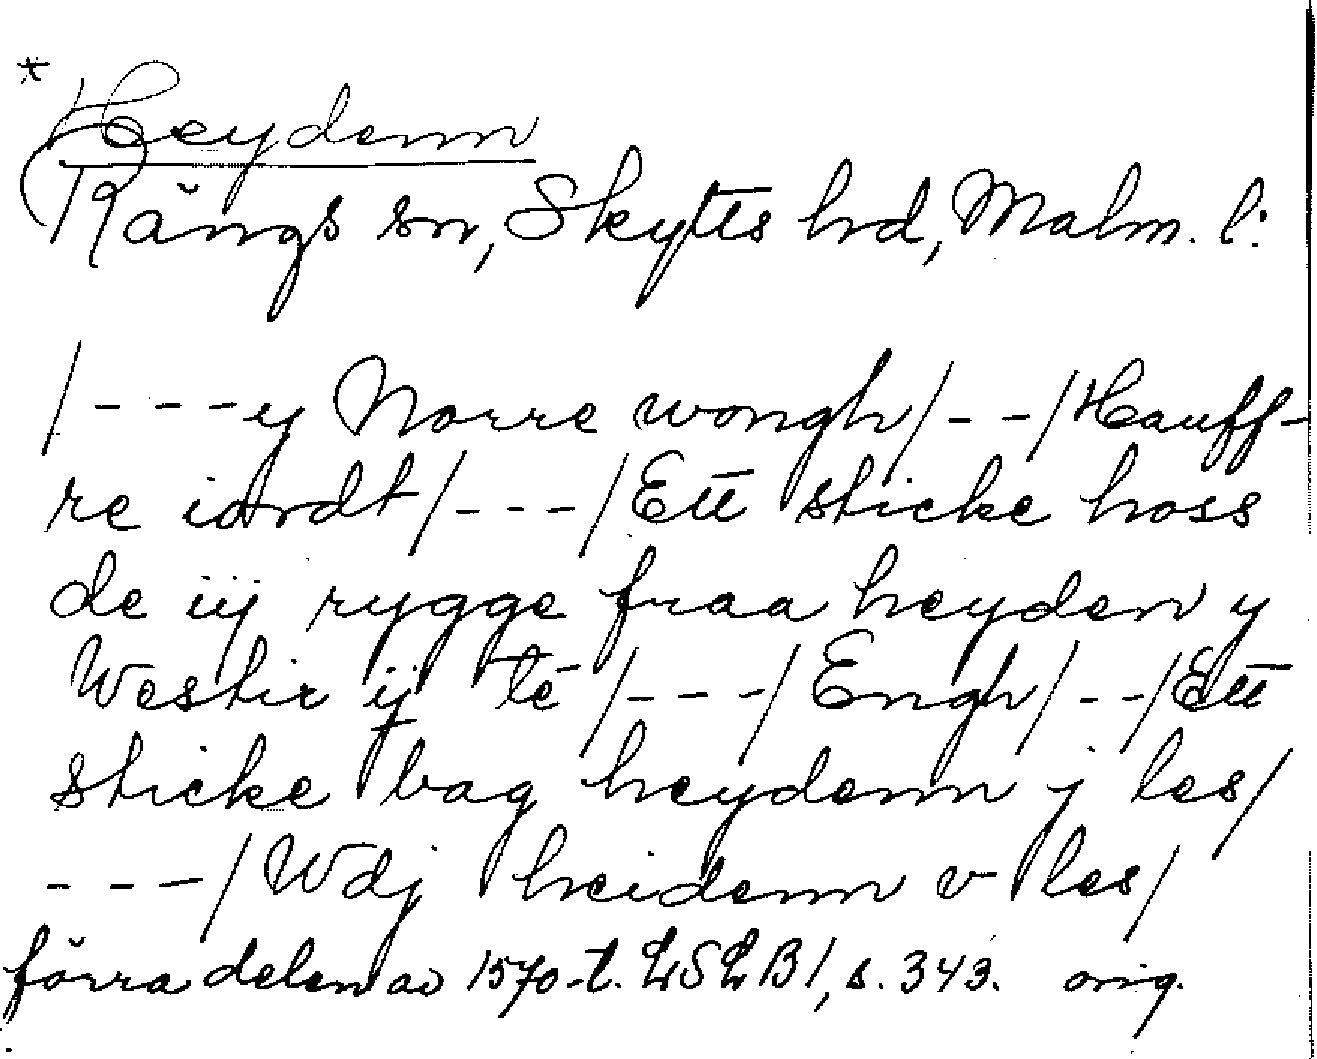 * Heydenn
Rängs sn, Skytts hd, Malm. l:
/---y Norre wongh/--/Hauff-
re iordt/---/Ett sticke hoss
de iij rygge fraa heyden y
Westir ij te /---/Engh/--/Ett
sticke bag heydenn j les/
---/Wdj heidenn v les/
förra delen av 1570-t. LSLB1, s. 343. orig.